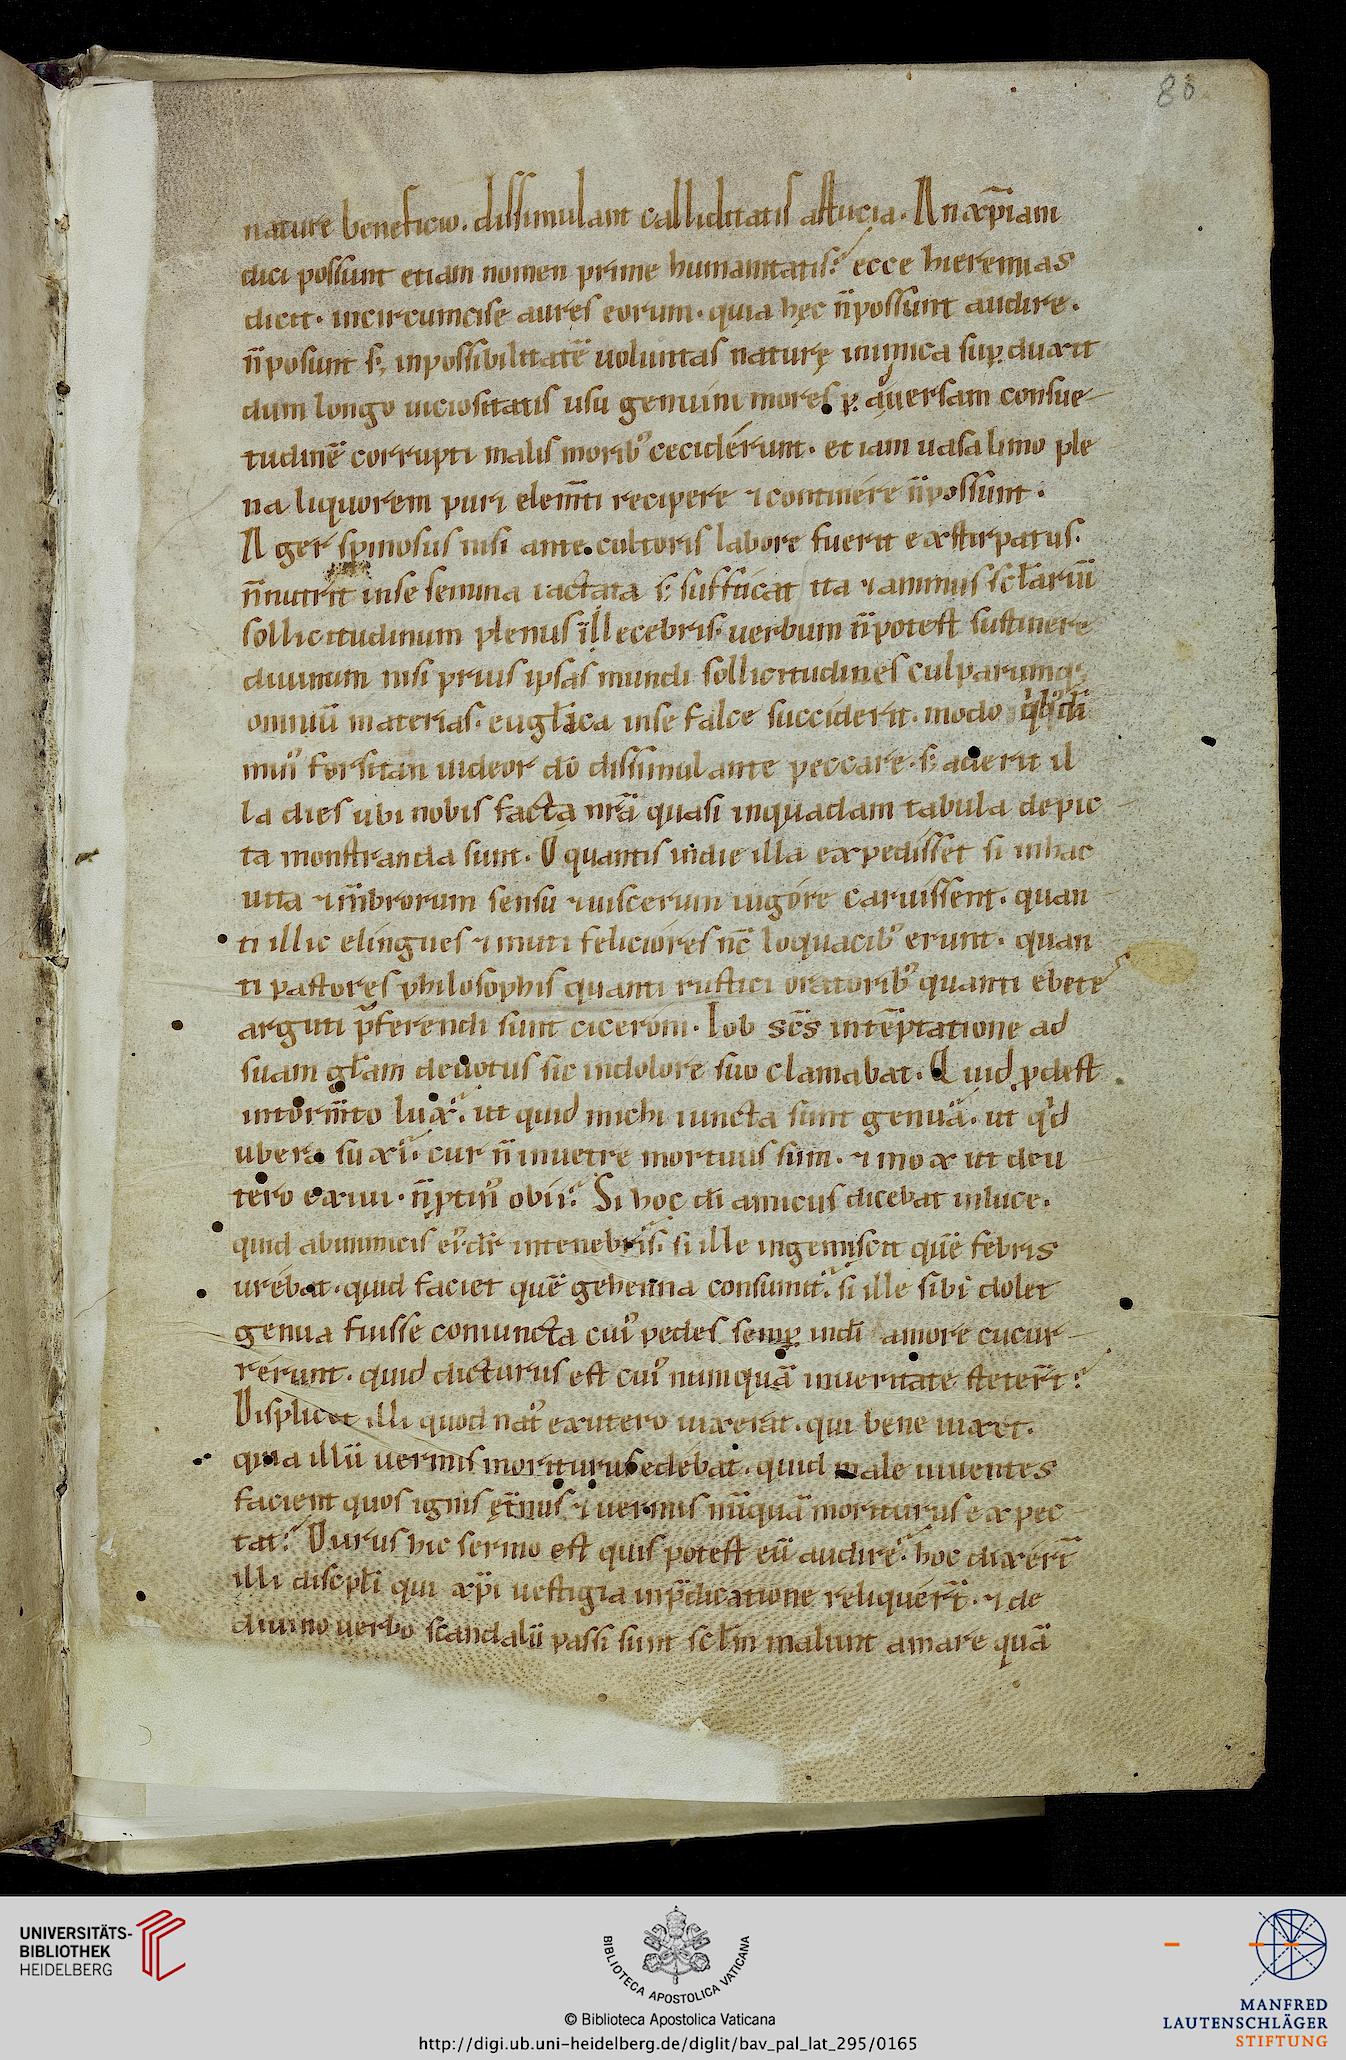 80
nature beneficio. dissimulant calliditatis astucia. An xp̄iani
dici possunt etiam nomen prime humanitatis? ecce hieremias
dicit. incircumcise aures eorum. quia hęc n̄ possunt audire.
n̄ posunt s; inpossibilitatē uoluntas naturę inimica suꝑduxit
dum longo uiciositatis usu genuini mores ꝑ auersam consue
tudinē corrupti malis moribꝰ ceciderunt. et iam uasa limo ple
na liquorem puri elem̄ti recipere ⁊ continere n̄ possunt.
Ager spinosus nisi ante cultoris labore fuerit exstirpatus.
n̄ nutrit inse semina iactata s; suffucat ita ⁊ animus sctařiū
sollicitudinum plenus illecebris. uerbum n̄ potest sustinere
diuinum nisi prius ipsas mundi sollicitudines culparumq;
omniū materias. eugl̄ica inse falce succiderit. modo
mur̉ forsitan uideor dō dissimulante peccare. s; aderit il
la dies ubi nobis facta nrā quasi inquadam tabula depic
ta monstranda sunt. O quantis indie illa expedisset si inhac
uita ⁊ m̄brorum sensu ⁊ uiscerum uigore caruissent. quan
ti illic elingues ⁊ muti feliciores nc̄ loquacibꝰ erunt. quan
ti pastores philosophis quanti rustici oratoribꝰ quanti ebetes
arguti p̄ferendi sunt ciceroni. Iob sc̄s intēptatione ad
suam gl̄am deuotus sic indolore suo clamabat. Quid ꝓdest
intorm̄to lux? ut quid michi iuncta sunt genua? ut qͥd
ubera suxi? cur n̄ inuetre mortuus sum. ⁊ mox ut deu
tero exiui. n̄ ꝓtinꝰ obii? Si hoc dī amicus dicebat inluce.
quid abinimicis eiꝰ dr̄ intenebris? si ille ingemiscit quē febris
urebat. quid faciet quē gehenna consumit? si ille sibi dolet
genua fuisse coniuncta cuiꝰ pedes semꝑ indī amore cucur
rerunt. quid dicturus est cuiꝰ numquā inueritate steter̄t?
Displicet illi quod natꝰ exutero uixerat. qui bene uixit.
quia illū uermis moriturus edebat. quid male uiuentes
facient quos ignis et̄nus ⁊ uermis nūquā moriturus expec
tat? Durus hic sermo est quis potest eū audire? hoc dixer̄t
illi discipl̄i qui xp̄i uestigia inp̄dicatione reliquer̄t. ⁊ de
diuino uerbo scandalū passi sunt scl̄m malunt amare quā
UNIVERSITÄTS-
BIBLIOTHEK
HEIDELBERG
BIBLIOTECA APOSTOLICA VATICANA
© Biblioteca Apostolica Vaticana
http://digi.ub.uni-heidelberg.de/diglit/bav_pal_lat_295/0165
MANFRED
LAUTENSCHLÄGER
STIFTUNG